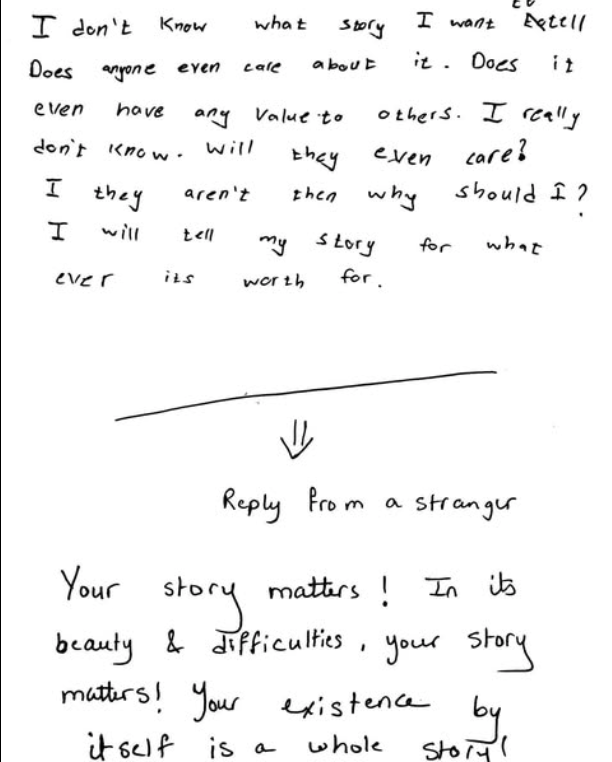 I don't know what story I want to tell
Does anyone even care about it. Does it
even have any value to others. I really
don't know. Will they even care?
I they aren't then why should I?
I will tell my story for what
ever its worth for.
Reply from a stranger
Your story matters! In its
beauty & difficulties, your story
matters! Your existence by
itself is a whole story!